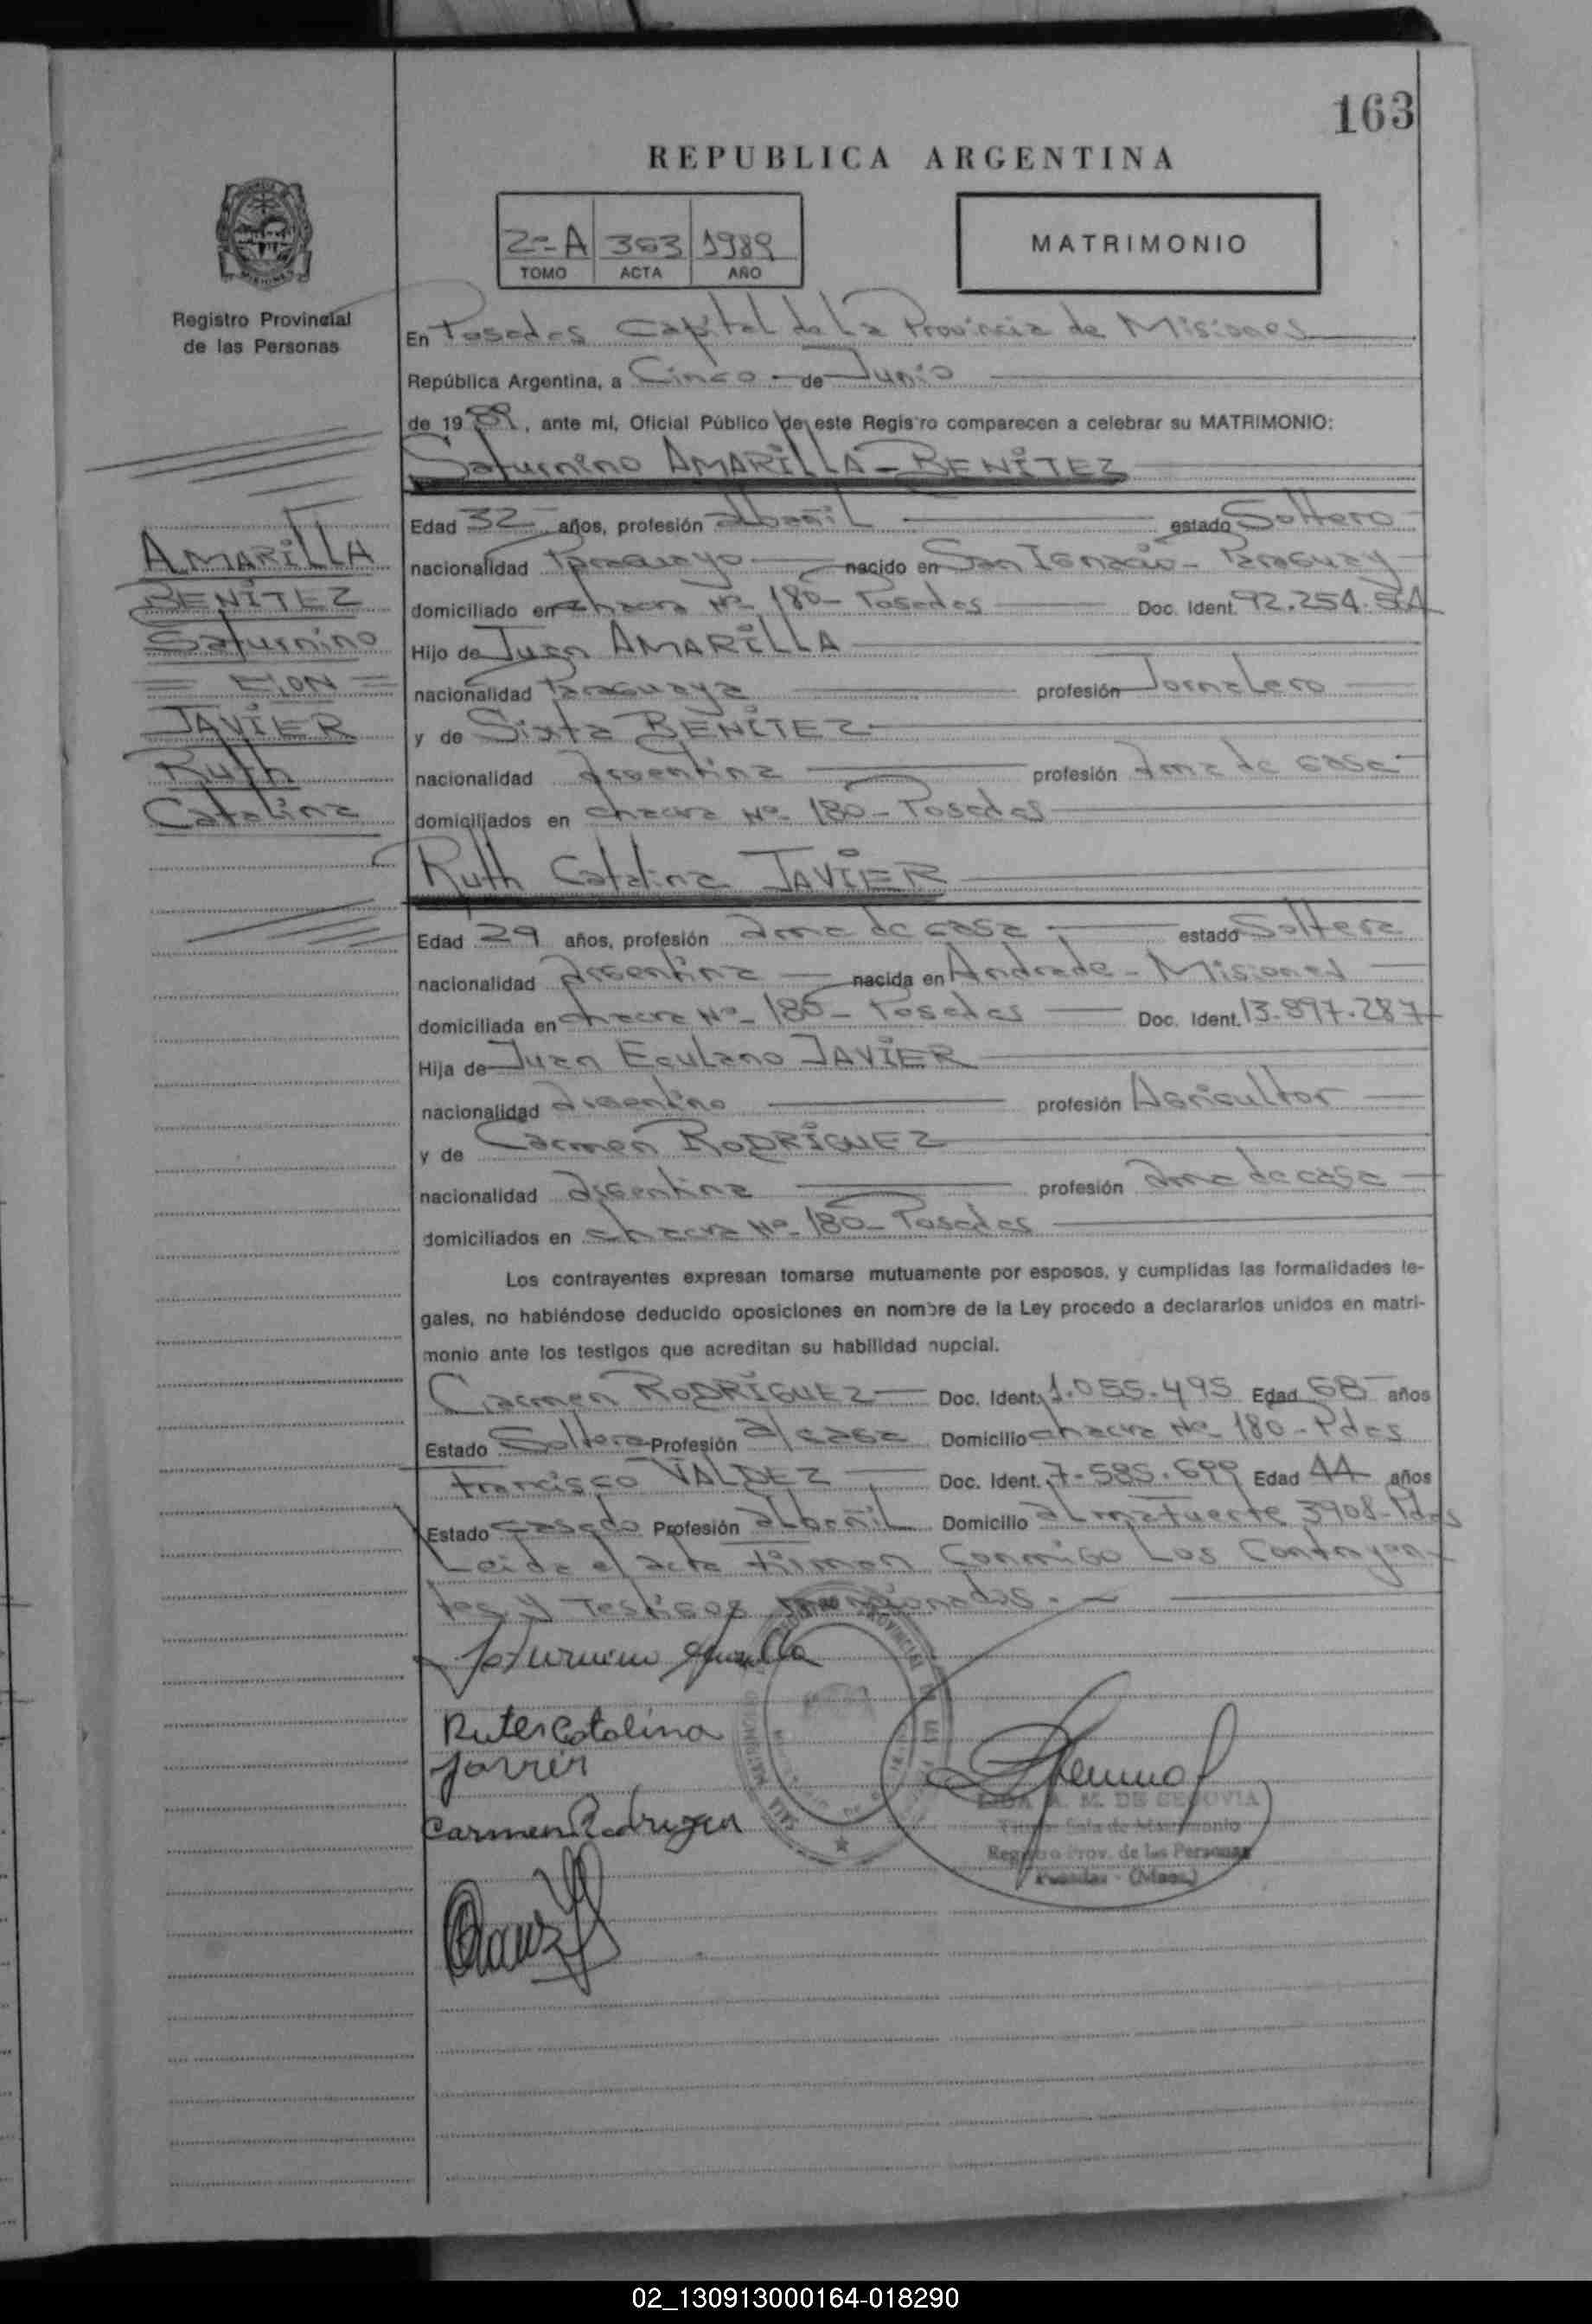 163
REPUBLICA ARGENTINA
2º-A 363 1989
TOMO ACTA AÑO
MATRIMONIO
Registro Provincial
de las Personas
En Posadas Capital de La Provincia de Misiones
República Argentina, a Cinco de Junio
de 1989, ante mí, Oficial Público de este Registro comparecen a celebrar su MATRIMONIO:
Saturnino AMARILLA-BENITEZ
Edad 32 años, profesión albañil estado Soltero
nacionalidad Paraguayo nacido en San Ignacio- Paraguay
domiciliado en chacra Nº 180- Posadas Doc. Ident. 92.254.
Hijo de Juan AMARILLA
nacionalidad Paraguaya profesión Jornalero
y de Sixta BENITEZ
nacionalidad argentina profesión ama de casa
domiciliados en chacra Nº 180- Posadas
AMARILLA
BENITEZ
Saturnino
= CON =
JAVIER
Ruth
Catalina
Ruth Catalina JAVIER
Edad 29 años, profesión ama de casa estado Soltera
nacionalidad argentina nacida en Andrade- Misiones
domiciliada en chacra Nº- 180- Posadas Doc. Ident. 13.897.287
Hija de Juan Egulano JAVIER
nacionalidad argentino profesión Agricultor
y de Carmen RODRIGUEZ
nacionalidad argentina profesión ama de casa
domiciliados en chacra Nº- 180- Posadas
Los contrayentes expresan tomarse mutuamente por esposos, y cumplidas las formalidades le-
gales, no habiéndose deducido oposiciones en nombre de la Ley procedo a declararlos unidos en matri-
monio ante los testigos que acreditan su habilidad nupcial.
Carmen RODRIGUEZ Doc. Ident. 1.055.495 Edad 68 años
Estado Soltera Profesión a/casa Domicilio chacra Nº 180-Pdas
Francisco VALDEZ Doc. Ident. 7.585.699 Edad 44 años
Estado casado Profesión albañil Domicilio almafuerte 3908-Pdas
Leida el acta Firman Conmigo Los Contrayen-
tes y Testigos mencionados.
Saturnino Amarilla
Ruter Catalina
Javier
Carmen Rodriguez
M. DE SEGOVIA
Sala de Matrimonio
Registro Prov. de las Personas
Posadas - (Mnes.)
02_130913000164-018290